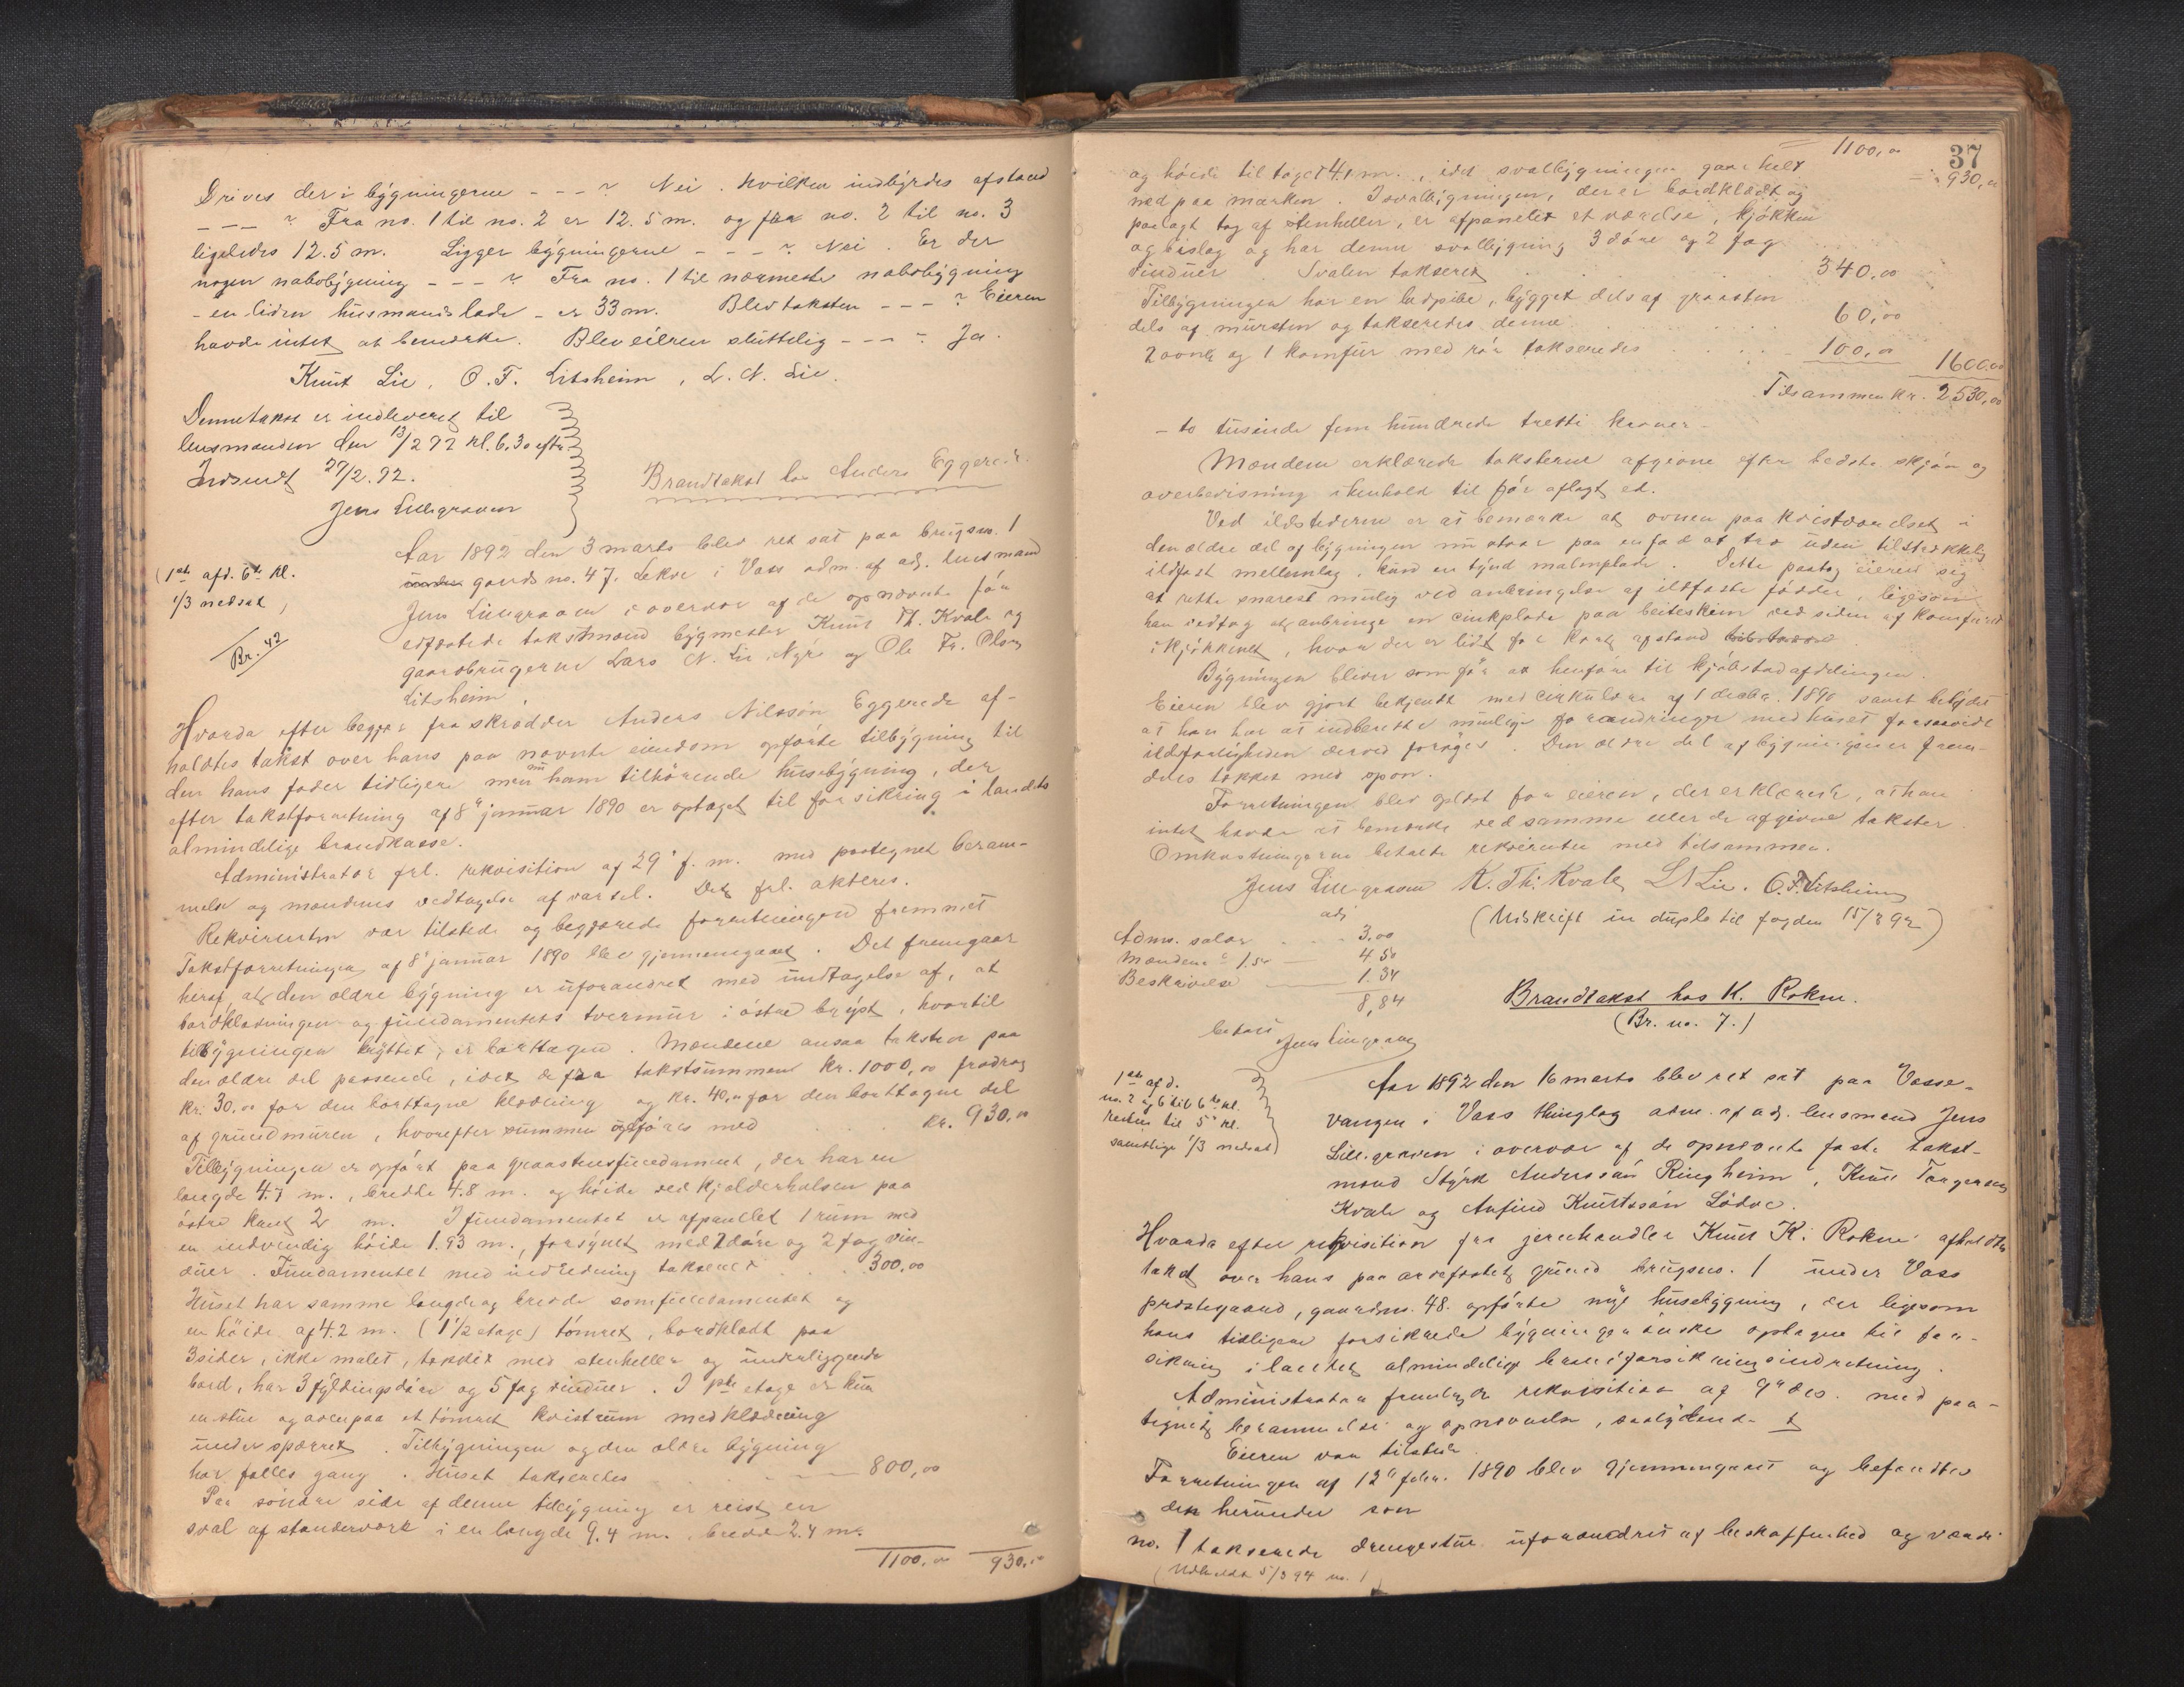 Drives der i bygningerne - - - ? Nei. Hvilken indbyrdes afstand
- - - ? Fra no. 1 til no. 2 er 12.5 m. og fra no. 2 til no. 3
ligeledes 12.5 m. Ligger bygningerne - - - ? Nei. Er der
nogen nabobygning - - - ? Fra no. 1 til nærmeste nabobygning
- en liden husmandslade - er 33 m. Blev taksten - - - ? Eieren
havde intet at bemærke. Blev eieren sluttelig - - - ? Ja.
Knut Lie, O. F. Litsheim, L. N. Lie.
Denne takst er indleveret til
lensmanden den 13/2 92 kl. 6.30 efm.
Indsendt 27/2.92.
Jens Lillegraven
Brandtakst hos Anders Eggerede.
(1ste afd. 6te kl.
1/3 nedsat)
Br. 42
Aar 1892 den 3 marts blev ret sat paa brugsno. 1
gaards no. 47. Lekve i Voss adm. af adj. lensmand
Jens Lillegraven i overvær af de opnævnte før
edfæstede takstmænd bygmester Knut Th. Kvale og
gaardbrugerne Lars N. Lie, Nyre og Ole Fr. Olsen
Litsheim.
Hvorda efter begjær fra skrædder Anders Nilssøn Eggerede af-
holdtes takst over hans paa nævnte eiendom opførte tilbygning til
den hans fader tidligere men nu ham tilhørende husebygning, der
efter takstforretning af 8de januar 1890 er optaget til forsikring i landets
almindelige brandkasse.
Administrator frl. rekvisition af 29' f. m. med paategnet beram-
melse og mændenes vedtagelse af varsel. Det frl. akteres.
Rekvirenten var tilstede og begjærede forretningen fremmet
Takstforretningen af 8' januar 1890 blev gjennemgaaet. Det fremgaar
heraf, at den ældre bygning er uforandret med undtagelse af, at
bordklædningen og fundamentets tvermur i østre bryst, hvortil
tilbygningen knyttet, er borttagen. Mændene ansaa taksten paa
den ældre del passende, idet de fra takstsummen kr. 1000,00 fradrog
kr. 30,00 for den borttagne klædning og kr. 40,00 for den borttagne del
af grundmuren, hvorefter summen opføres med . . . kr. 930,00
Tilbygningen er opført paa graastensfundament, der har en
længde 4.7 m., bredde 4.8 m. og høide ved kjælderhalsen paa
østre kant 2 m. I fundamentet er afpanellet 1 rum med
en indvendig høide 1.93 m., forsynet med 2 døre og 2 fag vin-
duer. Fundamentet med indredning takseret . . . 300,00
Huset har samme længde og bredde som fundamentet og
en høide af 4.2 m. (1 1/2 etage) tømret, bordklædt paa
3 sider, ikke malet, tækket med stenheller og underliggende
bord, har 3 fyldingsdøre og 5 fag vinduer. I 1ste etage er kun
en stue og ovenpaa et tømret kvistrum med klædning
under sperret. Tilbygningen og den ældre bygning
har fælles gang. Huset takseredes . . . 800,00
Paa søndre side af denne tilbygning er reist en
sval af standerværk i en længde 9.4 m., bredde 2.4 m.
1100,00 930,00
37
1100,00 930,00
og høide til taget 4.1 m., idet svalbygningen gaar helt
ned paa marken. I svalbygningen, der er bordklædt og
paalagt tag af stenheller, er afpanelet et værelse, kjøkken
og bislag og har denne svalbygning 3 døre og 2 fag
vinduer Svalen takseret . . . 340,00
Tilbygningen har en ledpibe, bygget dels af graasten
dels af mursten og takseredes denne . . . 60,00
2 ovne og 1 komfur med rør takseredes . . . 100,00 1600,00
Tilsammen kr. 2530,00
- to tusinde fem hundrede tretti kroner -
Mændene erklærede taksterne afgivne efter bedste skjøn og
overbevisning i henhold til før aflagt ed.
Ved ildstederne er at bemærke at ovnen paa kvistværelset i
den ældre del af bygningen nu staar paa en fod af træ uden tilstrækkelig
ildfast mellemlag, kun en tynd malmplade. Dette paatog eieren sig
at rette snarest mulig ved anbringelse af ildfaste fødder, ligesom
han vedtog at anbringe en zinkplade paa beiteskien ved siden af komfuret
i kjøkkenet, hvor der er lidt for kort afstand
Bygningen bliver som før at henføre til kjøbstadafdelingen.
Eieren blev gjort bekjendt med cirkulære af 1 decbr. 1890 samt betydet
at han har at indberette mulige forandringer med huset forsaavidt
ildsfarligheden derved forøges. Den ældre del af bygningen er frem-
deles tækket med spon.
Forretningen blev oplæst for eieren, der erklærede, at han
intet havde at bemærke ved samme eller de afgivne takster
Omkostningerne betalte rekvirenten med tilsammen.
Jens Lillegraven K. Th. Kvale L N Lie. O. F. Litsheim
adj
(Udskrift in duplo til fogden 15/3 92)
Adms. salær . . . 3.00
Mændene à 1.50 — 4.50
Beskrivelse — 1.34
8,84
betalt
Jens Lillegraven
Brandtakst hos K. Rokne.
(Br. no. 7.)
1ste afd.
no. 2 og 6 til 6te kl.
resten til 5te kl.
samtlige 1/3 nedsat)
Aar 1892 den 16 marts blev ret sat paa Vosse-
vangen i Voss thinglag adm. af adj. lensmand Jens
Lillegraven i overvær af de opnævnte faste takst-
mænd Styrk Anderssøn Ringheim, Knut Torgersen
Kvale og Anfind Knutssøn Lødve.
Hvorda efter rekvisition fra jernhandler Knut K. Rokne afholdtes
takst over hans paa arvefæstet grund brugsno. 1 under Voss
prestegaard, gaardsno. 48. opførte nye husebygning, der ligesom
hans tidligere forsikrede bygninger ønskes optagne til for-
sikring i landets almindelige brandforsikringsindretning.
Administrator fremlagde rekvisition af 9de ds. med paa-
tegnet berammelse og opnævnelse, saalydende
Eieren var tilstede.
Forretningen af 12te febr. 1890 blev gjennemgaaet og befandtes
den herunder som
no. 1 takserede drengestue uforandret af beskaffenhed og værdi
(Udmeldt 5/3 94 no. 1)